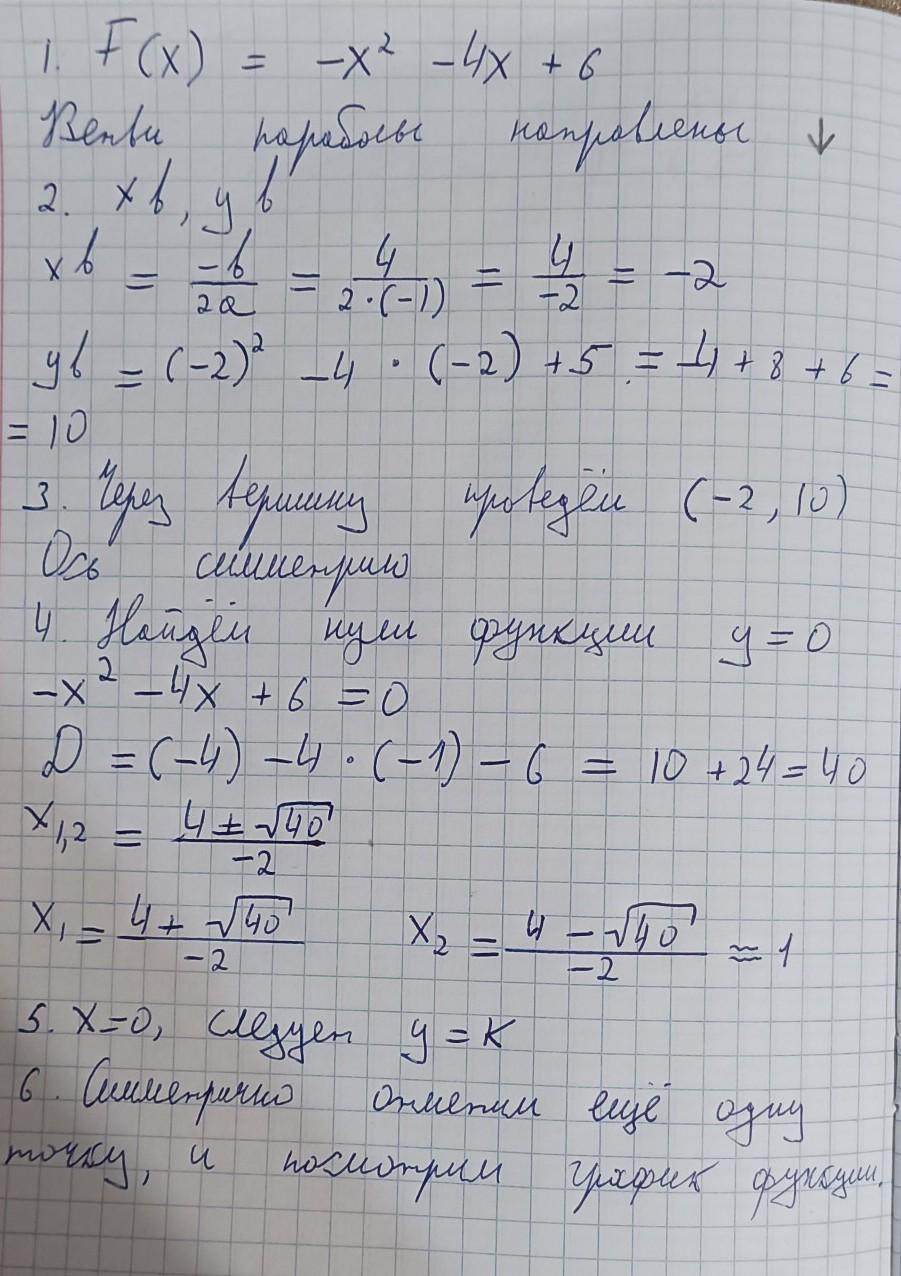 1. F(x) = -x² -4x + 6
Ветви параболы направлены ↓
2. xв, yв
xв = -b/2a = 4/2·(-1) = 4/-2 = -2
yв = (-2)² -4 · (-2) + 5 = -4 + 8 + 6 =
= 10
3. Через вершину проведём (-2, 10)
Ось симметрию
4. Найдём нули функции y = 0
-x² -4x + 6 = 0
D = (-4) -4 · (-1) - 6 = 10 + 24 = 40
x₁,₂ = 4 ± √40/-2
x₁ = 4 + √40/-2 x₂ = 4 - √40/-2 ≈ 1
5. x=0, следует y = к
6. Симметрично отметим ещё одну
точку, и посмотрим график функции.